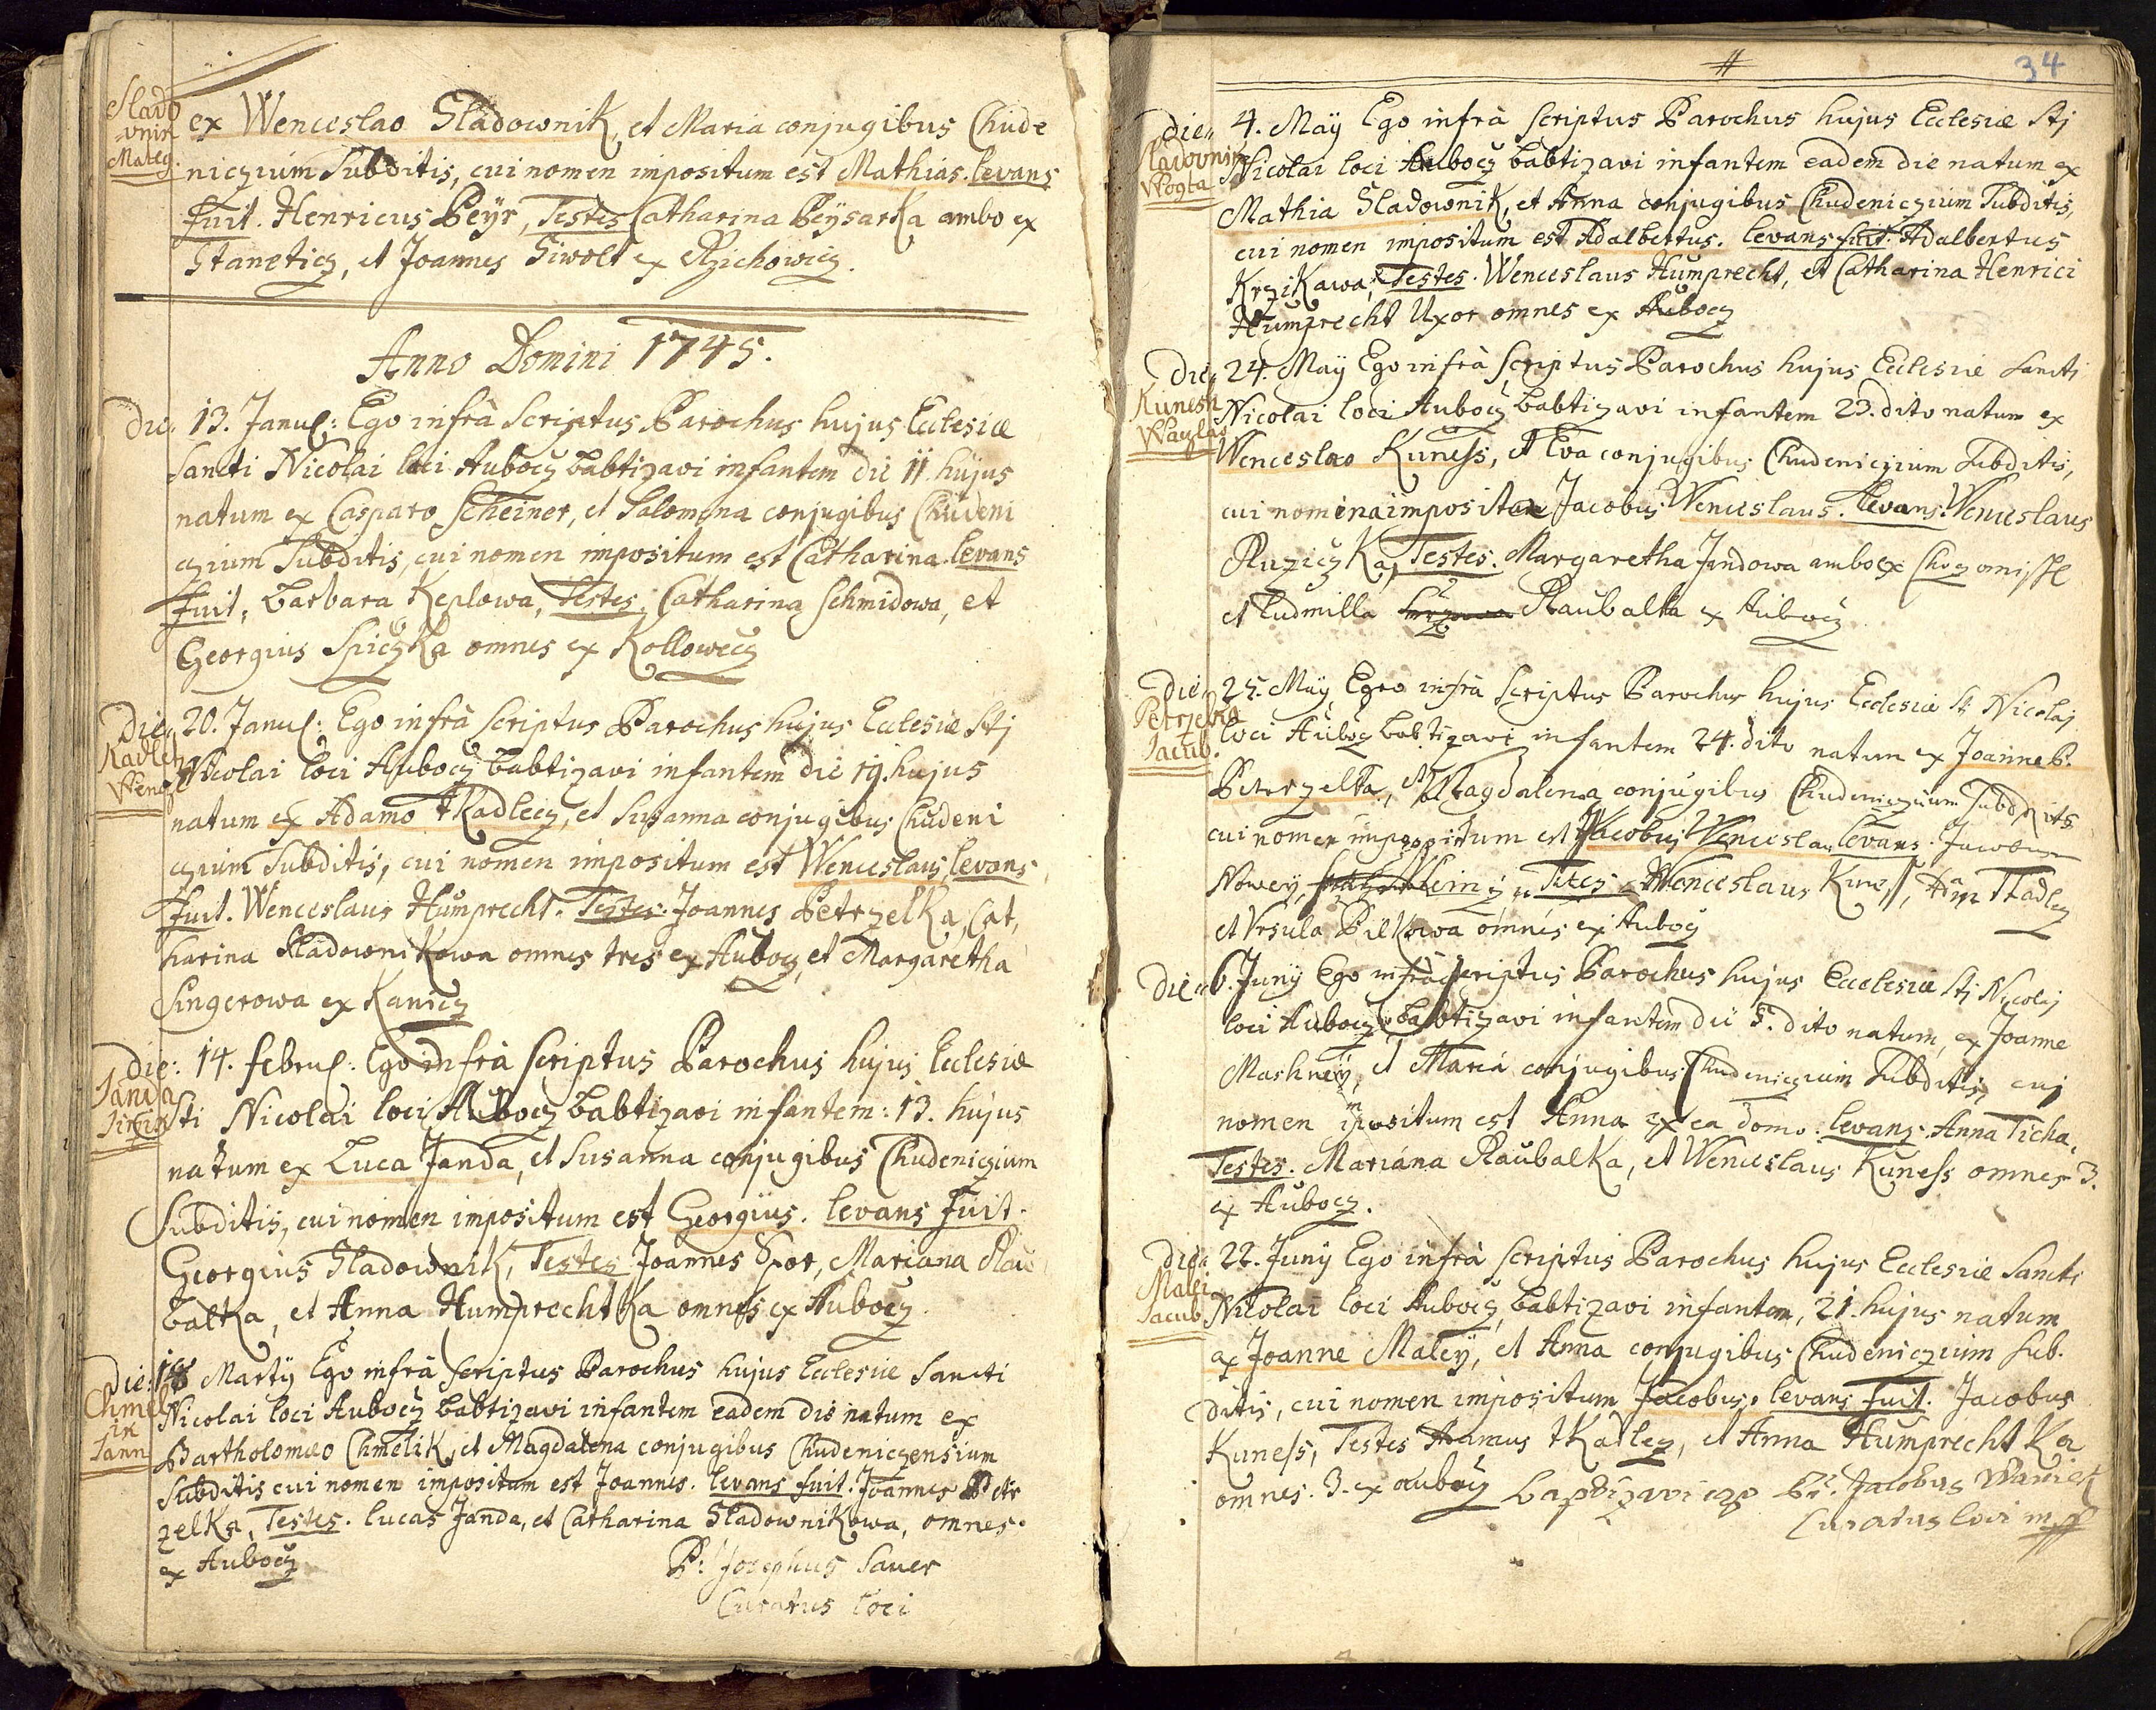 Slado
wnik
Mateg.
ex Wenceslao Sladownik, et Maria conjugibus Chude
niczium Subditis, cui nomen impositum est Mathias. levans
fuit. Henricus Beyr, Testes Catharina Beysarka ambo ex
Staneticz, et Joannes Siwolt ex Rzichowicz.
Anno Domini 1745.
Die. 13. Janu: Ego infrà Scriptus Parochus hujus Ecclesiæ
Sancti Nicolai loci Aubocz babtizavi infantem die 11. hujus
natum ex Casparo Scheiner, et Salomena conjugibus Chudeni
czium Subditis, cui nomen impositum est Catharina. levans
fuit. Barbara Keplowa, Testes. Catharina Schmidowa, et
Georgius Spiczka omnes ex Kollowecz
Die. 20. Janu: Ego infrà scriptus Parochus hujus Ecclesiæ Stj
Kadlecz
Wenzl
Nicolai loci Aubocz babtizavi infantem die 19. hujus
natum ex Adamo tKadlecz, et Susanna conjugibus Chudeni
czium Subditis, cui nomen impositum est Wenceslaus, levans
fuit. Wenceslaus Humprecht. Testes. Joannes Petrzelka, Cat,
harina Sladownikowa omnes tres ex Aubocz, et Margaretha
Singerowa ex Kanicz
Die: 14. febru: Ego infrà scriptus Parochus hujus Ecclesiæ
Janda
Jirzik
Sti Nicolai loci Aubocz babtizavi infantem: 13. hujus
natum ex Luca Janda, et Susanna conjugibus Chudeniczium
Subditis, cui nomen impositum est Georgius. levans fuit.
Georgius Sladownik, Testes Joannes Spor, Mariana Rau
balka, et Anna Humprechtka omnes ex Aubocz.
Die: 18 Martÿ Ego infrà scriptus Parochus hujus Ecclesiæ Sancti
Chmel
ik
Jann
Nicolai loci Aubocz babtizavi infantem eadem die natum ex
Bartholomæo Chmelik, et Magdalena conjugibus Chudeniczensium
Subditis cui nomen impositum est Joannes. levans fuit. Joannes Petr
zelka, Testes. lucas Janda, et Catharina Sladownikowa, omnes
ex Aubocz
P: Josephus Sauer
Curatus loci
34
die. 4. Maÿ Ego infrà scriptus Parochus hujus Ecclesiæ Stj
Sladovnik
Wogta
Nicolai loci Aubocz babtizavi infantem eadem die natum ex
Mathia Sladownik, et Anna conjugibus Chudeniczium Subditis,
cui nomen impositum est Adalbertus. levans fuit. Adalbertus
Krzikawa, Testes. Wenceslaus Humprecht, et Catharina Henrici
Humprecht Uxor omnes ex Aubocz
Die. 24. Maÿ Ego infrà scriptus Parochus hujus Ecclesiæ Sancti
Kunesh
Wazlaw
Nicolai loci Aubocz babtizavi infantem 23. dito natum ex
Wenceslao Kuness, et Eva conjugibus Chudeniczium Subditis,
cui nomina imposita Jacobus Wenceslaus. levans. Wenceslaus
Ruziczka, Testes. Margaretha Jandowa ambo ex Chozomissl
et Ludmilla Raubalka ex Aubocz
Die. 25. Maÿ Ego infrà scriptus Parochus hujus Ecclesiæ St Nicolaj
Petrzelka
Jacub.
loci Aubocz babtizavi infantem 24. dito natum ex Joanne P.
Peterzelka, et Magdalena conjugibus Chudeniczium Subditis
cui nomen impositum est Jacobus Wenceslaus levans. Jacobus
Nowey, Testes Wenceslaus Kuness, Adam tKadlez
et Ursula Bilkowa omnes ex Aubocz
Die. 6. Junÿ Ego infrà scriptus Parochus hujus Ecclesiæ Stj Nicolaj
loci Aubocz babtizavi infantem die 5. dito natum, ex Joanne
Mashney, et Maria conjugibus Chudeniczium Subditis, cuj
nomen impositum est Anna ex ea domo. levans. Anna Ticha.
Testes. Mariána Raubalka, et Wenceslaus Kuness omnes 3.
ex Aubocz.
Die. 22. Junÿ Ego infrà scriptus Parochus hujus Ecclesiæ Sancti
Malei
Jacub
Nicolai loci Aubocz babtizavi infantem, 21. hujus natum
ex Joanne Maleÿ, et Anna conjugibus Chudeniczium Sub.
ditis, cui nomen impositum Jacobus. levans fuit. Jacobus
Kuness, Testes Adamus tKadlez, et Anna Humprechtka
omnes. 3. ex Aubocz baptizavi ego Pr. Jacobus Waniek
Curatus loci mp